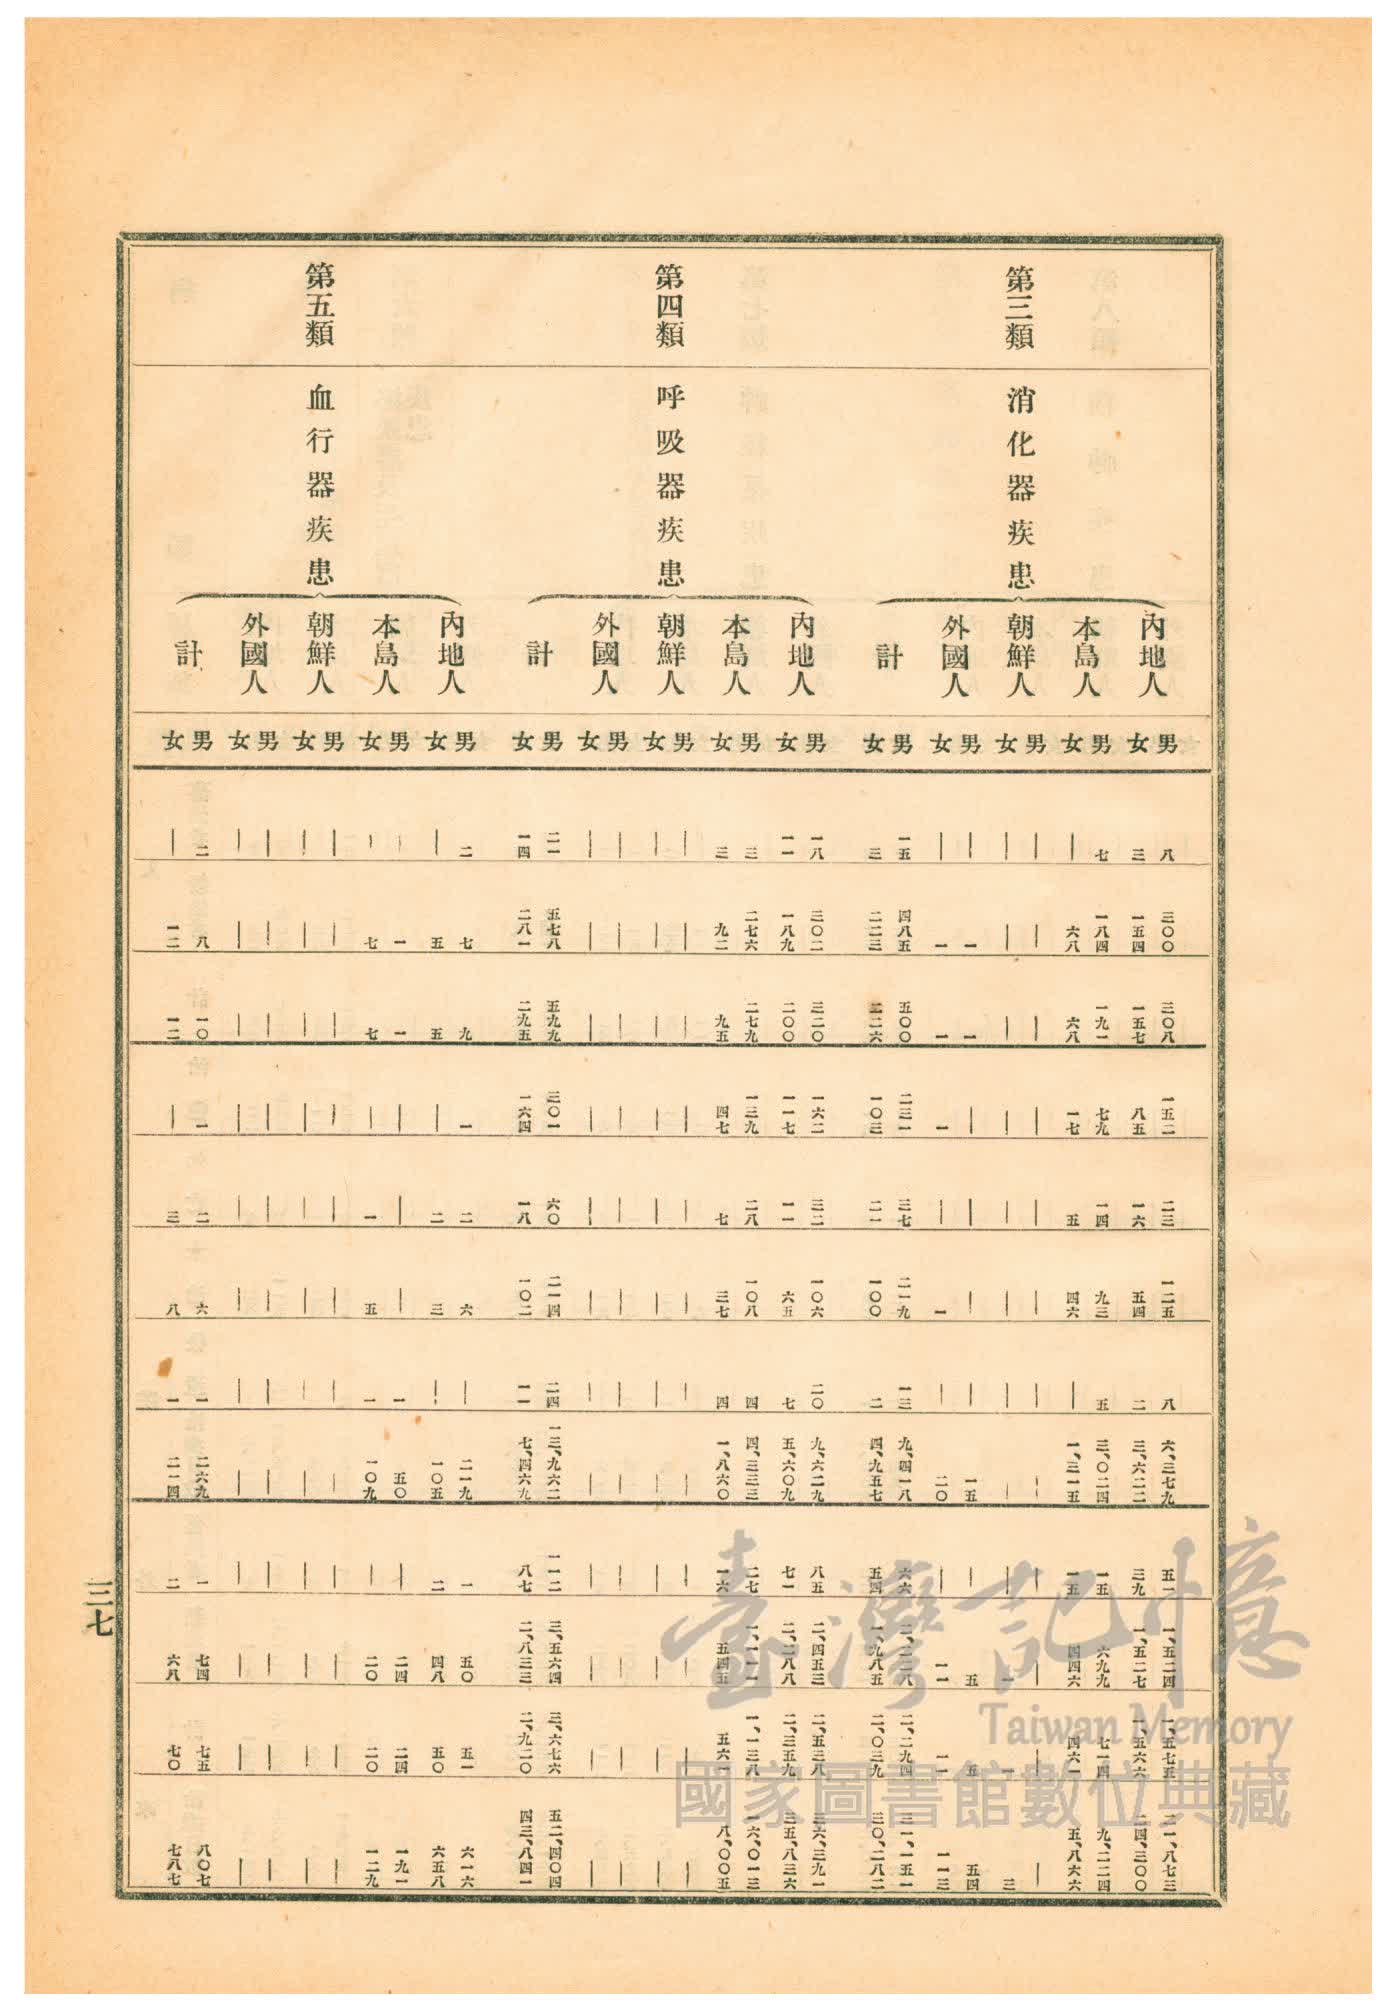 第三類 消化器疾患
內地人
男 八 三〇〇 三〇八 一五二 二三 一二五 八 六、三七九 五一 一、五二四 一、五七五 二一、八七三
女 三 一五四 一五七 八五 一六 五四 二 三、六二二 三九 一、五二七 一、五六六 二四、三〇〇
本島人
男 七 一八四 一九一 七九 一四 九三 五 三、〇二四 一五 六九九 七一四 九、二二四
女 | 六八 六八 一七 五 四六 | 一、三一五 一五 四四六 四六一 五、八六六
朝鮮人
男 | | | | | | | | | | | |
女 | | | | | | | | | 一 一 三
外國人
男 | 一 一 | | | | 一五 | 五 五 五四
女 | 一 一 一 | 一 | 二〇 | 一一 一一 一一三
計
男 一五 四八五 五〇〇 二三一 三七 二一九 一三 九、四一八 六六 二、二二八 二、二九四 三一、一五一
女 三 二二三 二二六 一〇三 二一 一〇〇 二 四、九五七 五四 一、九八五 二、〇三九 三〇、二八二
第四類 呼吸器疾患
內地人
男 一八 三〇二 三二〇 一六二 三二 一〇六 二〇 九、六二九 八五 二、四五三 二、五三八 三六、三九一
女 一一 一八九 二〇〇 一一七 一一 六五 七 五、六〇九 七一 二、二八八 二、三五九 三五、八三六
本島人
男 三 二七六 二七九 一三九 二八 一〇八 四 四、三三三 二七 一、一一一 一、一三八 一六、〇一三
女 三 九二 九五 四七 七 三七 四 一、八六〇 一六 五四五 五六一 八、〇〇五
朝鮮人
男 | | | | | | | | | | | |
女 | | | | | | | | | | | |
外國人
男 | | | | | | | | | | | |
女 | | | | | | | | | | | |
計
男 二一 五七八 五九九 三〇一 六〇 二一四 二四 一三、九六二 一一二 三、五六四 三、六七六 五二、四〇四
女 一四 二八一 二九五 一六四 一八 一〇二 一一 七、四六九 八七 二、八三三 二、九二〇 四三、八四一
第五類 血行器疾患
內地人
男 二 七 九 一 二 六 | 二一九 一 五〇 五一 六一六
女 | 五 五 | 二 三 | 一〇五 二 四八 五〇 六五八
本島人
男 | 一 一 | | | 一 五〇 | 二四 二四 一九一
女 | 七 七 | 一 五 一 一〇九 | 二〇 二〇 一二九
朝鮮人
男 | | | | | | | | | | | |
女 | | | | | | | | | | | |
外國人
男 | | | | | | | | | | | |
女 | | | | | | | | | | | |
計
男 二 八 一〇 一 二 六 一 二六九 一 七四 七五 八〇七
女 | 一二 一二 | 三 八 一 二一四 二 六八 七〇 七八七
三七
臺灣記憶
Taiwan Memory
國家圖書館數位典藏